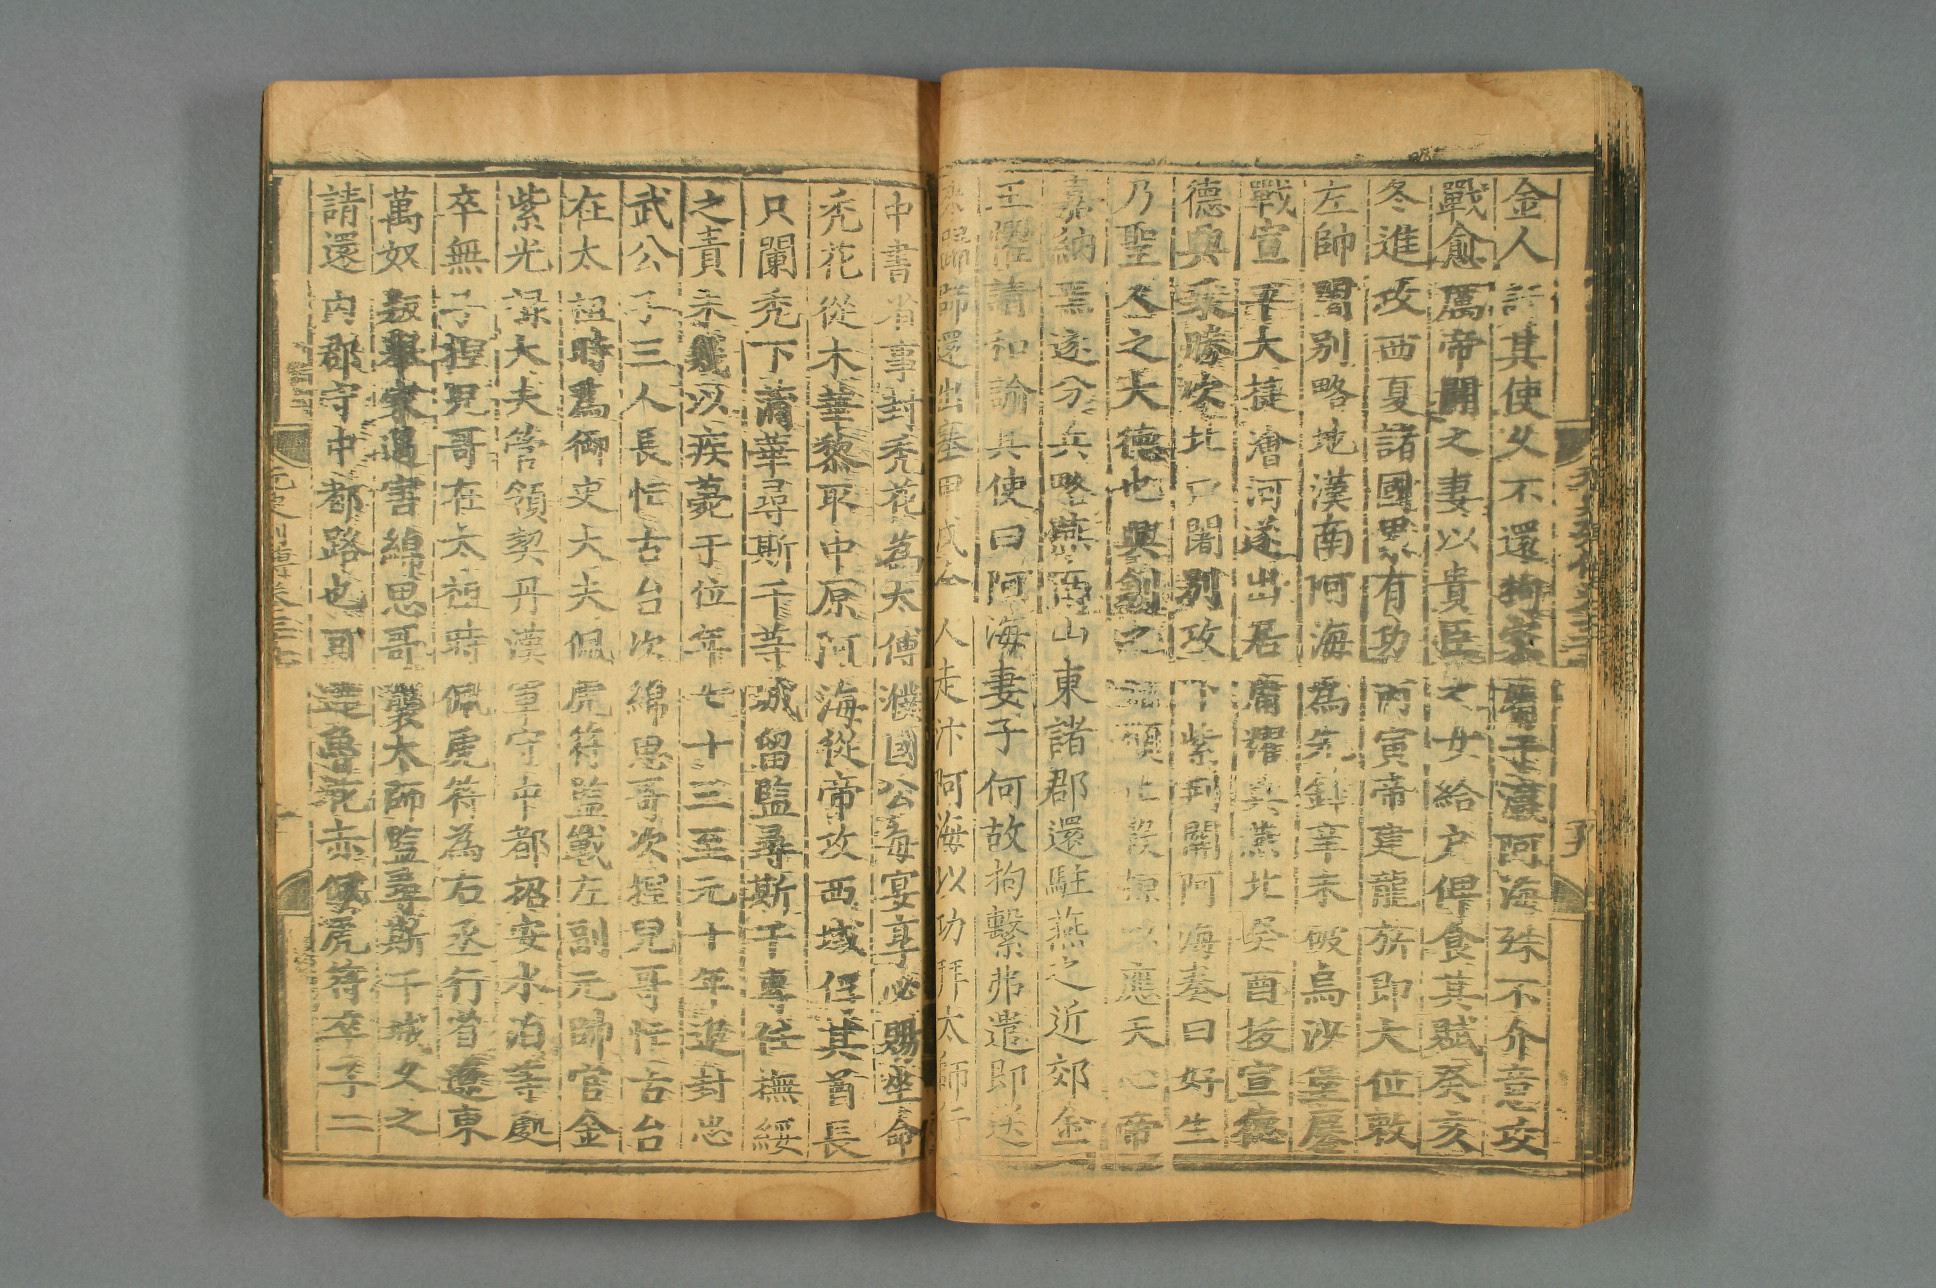 金人訝其使久不還拘家屬于瀛阿海殊不介意攻
戰愈厲帝聞之妻以貴臣之女給戶俾食其賦癸亥
冬進攻西夏諸國累有功丙寅帝建龍旂即大位敕
左帥闍別略地漢南阿海為先鋒辛未破烏沙堡屢
戰宣平大捷澮河遂出居庸耀兵燕北癸酉拔宣德
德興乘勝次北口闍別攻下紫荊關阿海奏曰好生
乃聖人之大德也興創之 願止殺掠以應天心帝
嘉納焉遂分兵略燕南山東諸郡還駐燕之近郊金
主懼請和諭其使曰阿海妻子何故拘繫弗遣即送
來歸師還出塞甲戌金人走汴阿海以功拜太師行
中書省事封禿花為太傅濮國公每宴享必賜坐命
禿花從木華黎取中原阿海從帝攻西域俘其酋長
只闌禿下蒲華尋斯干等城留監尋斯干專任撫綏
之責未幾以疾薨于位年七十三至元十年追封忠
武公子三人長忙古台次綿思哥次捏兒哥忙古台
在太祖時為御史大夫佩虎符監戰左副元帥官金
紫光祿大夫管領契丹漢軍守中都招安水泊等處
卒無子捏兒哥在太祖時佩虎符為右丞行省遼東
萬奴叛舉家遇害綿思哥襲太師監尋斯干城久之
請還內郡守中都路也可達魯花赤佩虎符卒子二
元史列傳卷三十七